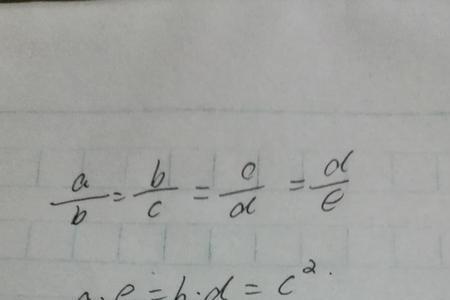 a/b = b/c = c/d = d/e
a·e = b·d = c².